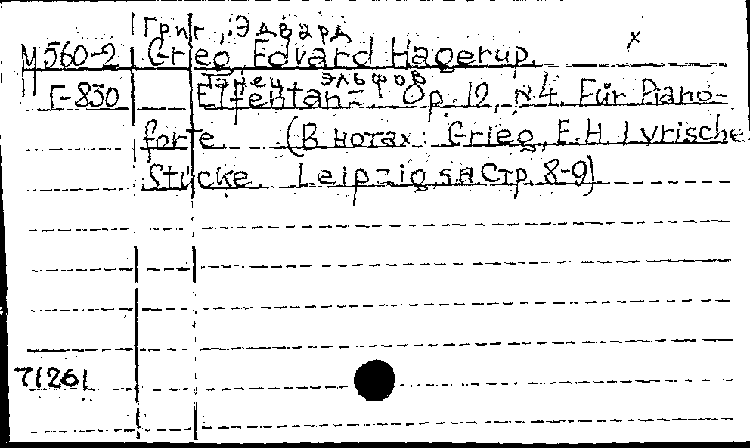 Григ, Эдвард
М 560-2 Grieg, Edvard Hagerup.
Танец эльфов
Г-830 Elfentanz. Op. 12, №4. Für Piano-
forte. (В нотах: Grieg, E.H. Lyrische
Stücke. Leipzig, s.a. Стр. 8-9)
71261